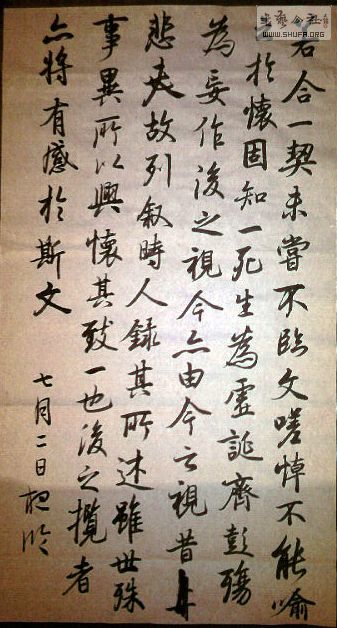 若合一契未嘗不臨文嗟悼不能喻
於懷固知一死生為虛誕齊彭殤
為妄作後之視今亦由今之視昔
悲夫故列敘時人錄其所述雖世殊
事異所以興懷其致一也後之攬者
亦將有感於斯文
七月二日
書藝公社
WWW.SHUFA.ORG